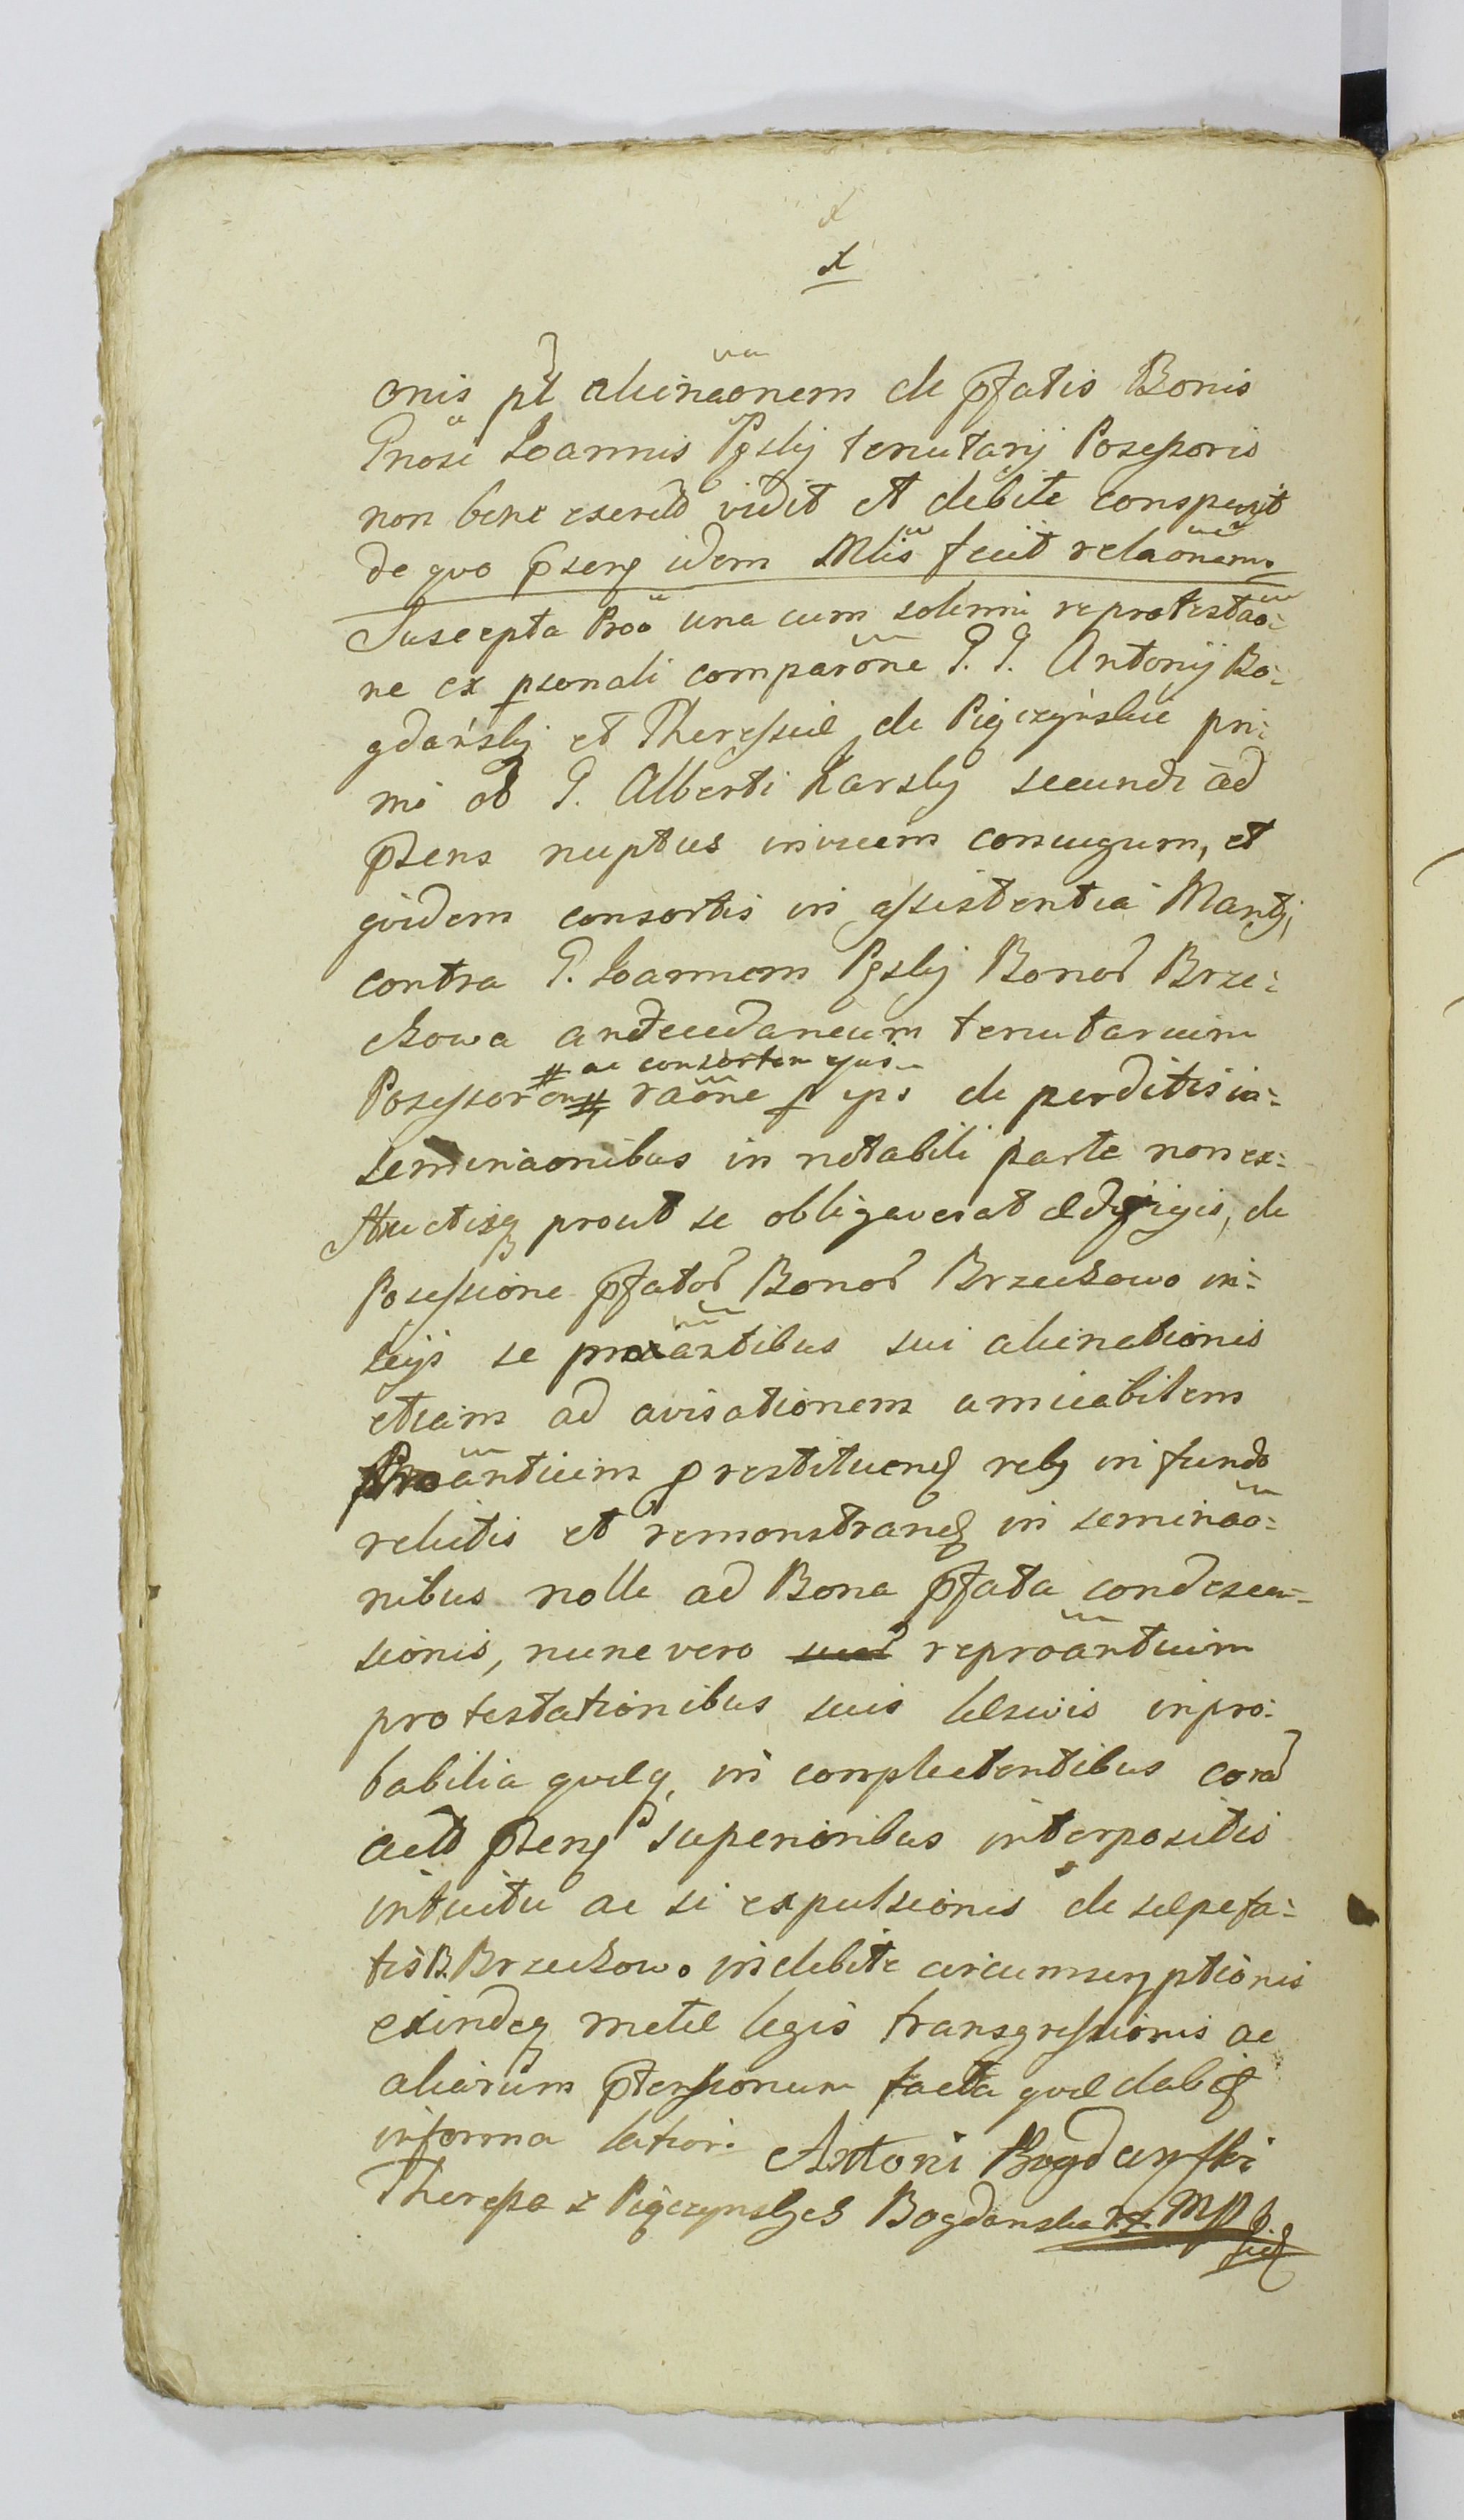 onis pt alienaonem de pfatis Bonis
Gnosi Joannis Pgskij tenutarij Posessoris
non bene vidit et debite conspexit
de quo pseng idem Mlis fecit relaonem.
Suscepta Proo una cum solemni reprotestao:
ne ex psonali comparone G. G. Antonij Bo:
gdańskij et Theressiæ de Pigczyńskie pri:
mi ob G. Alberti Karskij secundi ad
ptens nuptus invicem coniugum, et
qvidem consortis in assistentia Mariti,
contra G. Joannem Pgskij Bonor Brze:
zkowa antecedaneum tenutarium
# ac consortem ejus
Posessorem # raone p eps de perditis in:
seminaonibus in notabili parte non ex:
structisq prout se obligaverat ædificijs, de
Posessione pfator Bonor Brzezkowo in:
seijs se proantibus sui alienationis
etiam ad avisationem amicabilem
Proantium p restituend rebg in fundo
relictis et remonstrand in seminao:
nibus nolle ad Bona pfata condescen:
sionis, nunc vero reproantium
protestationibus suis læsivis inpro:
babilia qvæq, in complectentibus corā
actis pseng superioribus interpositis
intuitu ac si expulsionis de sæpefa:
tis B. Brzezkowo indebite circumscryptionis
exindeq metæ legis transgressionis ac
aliarum ptensionum facta qvæ dabit
in forma latiori. Antoni Bogdanski
Theressa z Pigczynskych Bogdanska MP